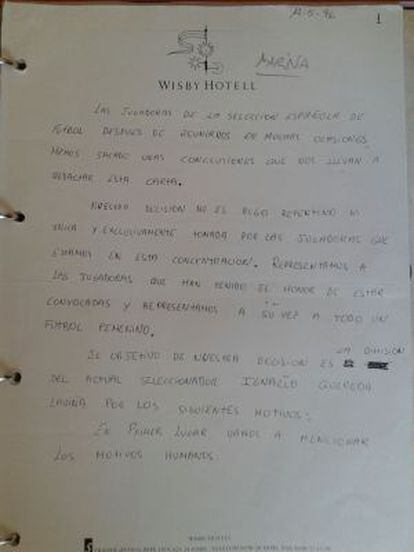 A-5-96 1
MARINA
WISBY HOTELL
LAS JUGADORAS DE LA SELECCION ESPAÑOLA DE
FUTBOL DESPUES DE REUNIRNOS EN MUCHAS OCASIONES,
HEMOS SACADO UNAS CONCLUSIONES QUE NOS LLEVAN A
REDACTAR ESTA CARTA.
NUESTRA DECISION NO ES ALGO REPENTINO NI
UNICA Y EXCLUSIVAMENTE TOMADA POR LAS JUGADORAS QUE
ESTAMOS EN ESTA CONCENTRACION. REPRESENTAMOS A
LAS JUGADORAS QUE HAN TENIDO EL HONOR DE ESTAR
CONVOCADAS Y REPRESENTAMOS A SU VEZ A TODO UN
FUTBOL FEMENINO.
EL OBJETIVO DE NUESTRA DECISION ES LA DIMISION
DEL ACTUAL SELECCIONADOR IGNACIO QUEREDA
LAVIÑA POR LOS SIGUIENTES MOTIVOS:
EN PRIMER LUGAR VAMOS A MENCIONAR
LOS MOTIVOS HUMANOS:
WISBY HOTELL